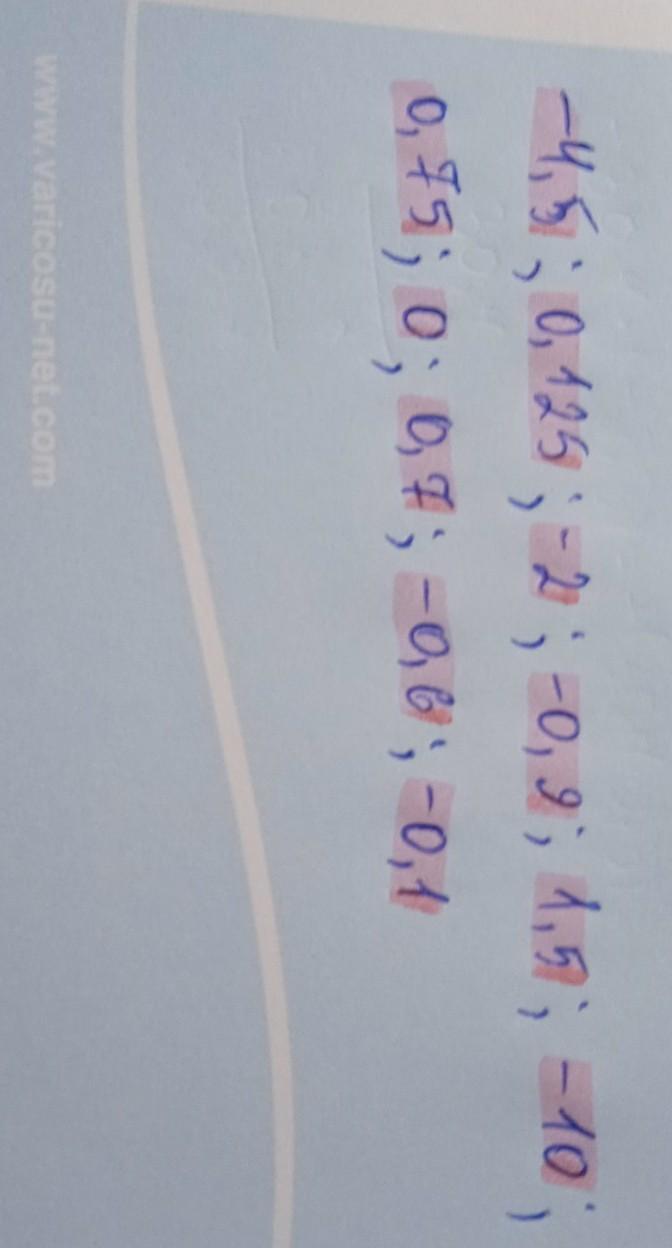 -4,5; 0,125; -2; -0,9; 1,5; -10;
0,75; 0; 0,7; -0,6; -0,1
www.varicosu-net.com